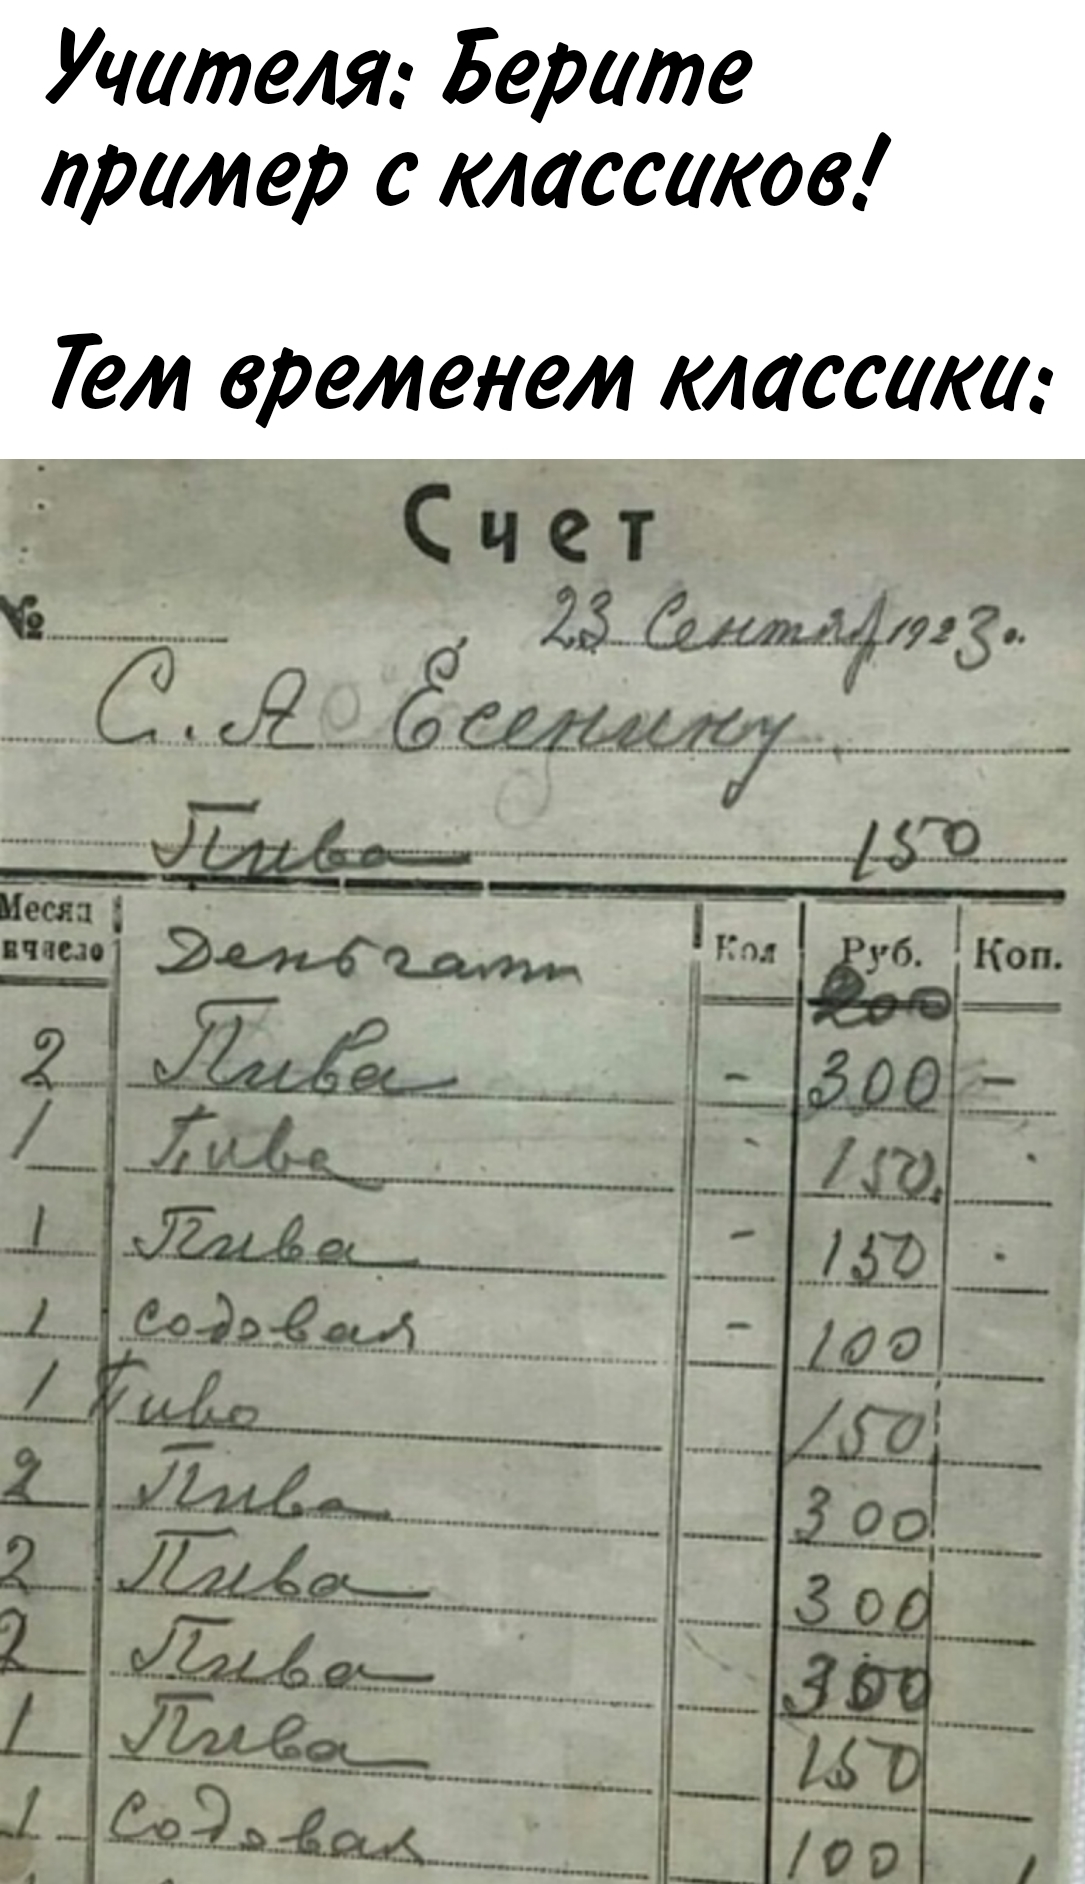 Учителя: Берите
пример с классиков!
Тем временем классики:
Счет
№ 23 Сентяб 1923 г.
С. А Есенину
Пива 150
Месяц и число Деньгами Кол Руб. Коп.
200
2 Пива - 300 -
1 Пива - 150
1 Пива - 150
1 содовая - 100
1 Пиво 150
2 Пива 300
2 Пива 300
2 Пива 300
1 Пива 150
1 Содовая 100